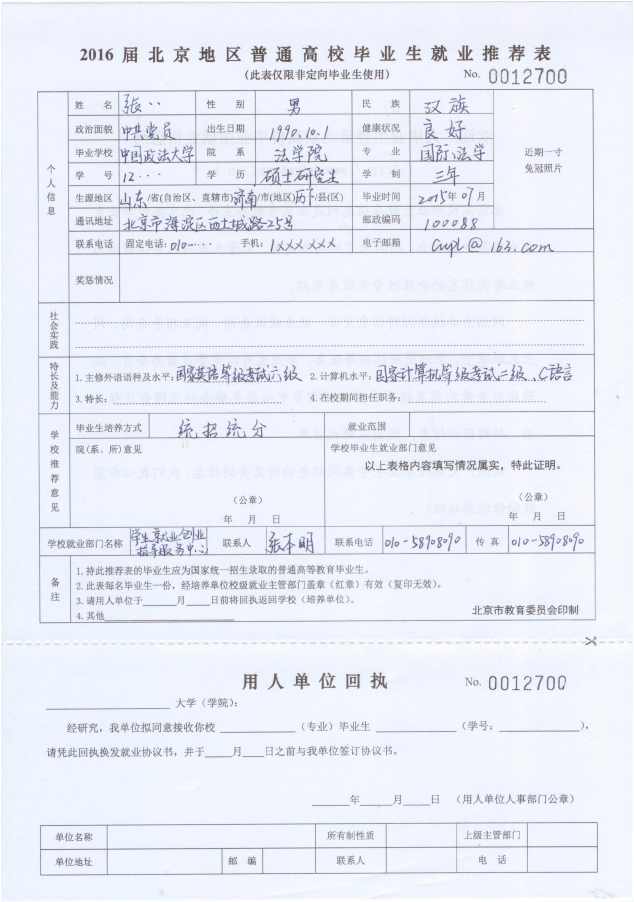 2016届北京地区普通高校毕业生就业推荐表
(此表仅限非定向毕业生使用) No. 0012700
个人信息
姓 名 张·· 性 别 男 民 族 汉族
政治面貌 中共党员 出生日期 1990.10.1 健康状况 良好
近期一寸
免冠照片
毕业学校 中国政法大学 院 系 法学院 专 业 国际法学
学 号 12··· 学 历 硕士研究生 学 制 三年
生源地区 山东/省(自治区、直辖市)济南/市(地区)历下/县(区) 毕业时间 2015年07月
通讯地址 北京市海淀区西土城路25号 邮政编码 100088
联系电话 固定电话:010-···· 手机:1XXX XXX 电子邮箱 cupl@163.com
奖惩情况
社会实践
特长及能力
1.主修外语语种及水平:国家英语等级考试六级 2.计算机水平:国家计算机等级考试二级、C语言
3.特长: 4.在校期间担任职务:
学校推荐意见
毕业生培养方式 统招统分 就业范围
院(系、所)意见 学校毕业生就业部门意见
以上表格内容填写情况属实，特此证明。
(公章) (公章)
年 月 日 年 月 日
学校就业部门名称 学生就业创业指导服务中心 联系人 张本明 联系电话 010-58908090 传 真 010-58908090
备注
1.持此推荐表的毕业生应为国家统一招生录取的普通高等教育毕业生。
2.此表每名毕业生一份，经培养单位校级就业主管部门盖章（红章）有效（复印无效）。
3.请用人单位于______月______日前将回执返回学校（培养单位）。
4.其他
北京市教育委员会印制
用人单位回执 No. 0012700
大学（学院）：
经研究，我单位拟同意接收你校______（专业）毕业生______（学号：______），
请凭此回执换发就业协议书，并于____月____日之前与我单位签订协议书。
____年____月____日 （用人单位人事部门公章）
单位名称 所有制性质 上级主管部门
单位地址 邮 编 联系人 电 话